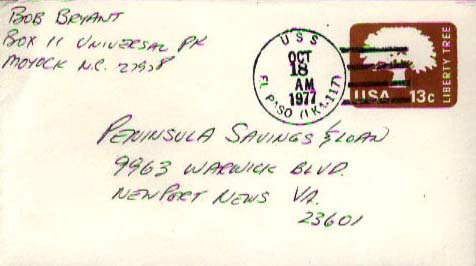 BOB BRYANT
BOX 11 UNIVERSAL PK
MOYOCK N.C. 27958
USS
OCT
18
AM
1977
EL PASO (LKA-117)
USA 13c
LIBERTY TREE
PENINSULA SAVINGS & LOAN
9963 WARWICK BLVD.
NEWPORT NEWS VA.
23601